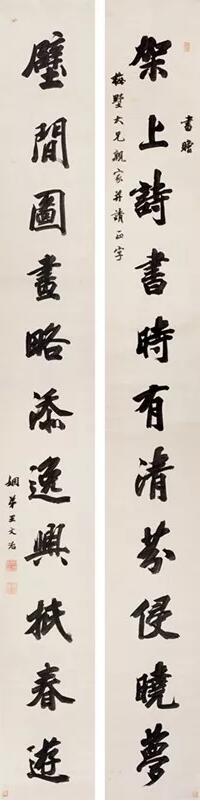 書贈
梅墅大兄親家并請正字
架上詩書時有清芬侵曉夢
壁間圖畫略添逸興撇春遊
姻弟王文治